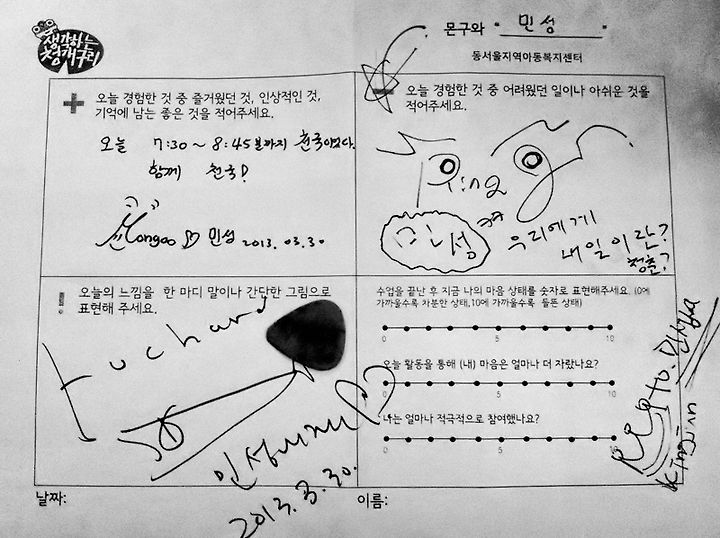 생각하는
청개구리
몬구와 " 민성 "
동서울지역아동복지센터
+ 오늘 경험한 것 중 즐거웠던 것, 인상적인 것,
기억에 남는 좋은 것을 적어주세요.
오늘 7:30 ~ 8:45분까지 천국이었다.
함께 천국!
Mongoo ♡ 민성 2013. 03. 30
- 오늘 경험한 것 중 어려웠던 일이나 아쉬운 것을
적어주세요.
민성
우리에게
내일이란?
청춘?
! 오늘의 느낌을 한 마디 말이나 간단한 그림으로
표현해 주세요.
2013. 3. 30.
수업을 끝난 후 지금 나의 마음 상태를 숫자로 표현해주세요. (0에
가까울수록 차분한 상태, 10에 가까울수록 들뜬 상태)
0 5 10
오늘 활동을 통해 (내) 마음은 얼마나 더 자랐나요?
0 5 10
나는 얼마나 적극적으로 참여했나요?
0 5 10
to. 민성
날짜:
이름: